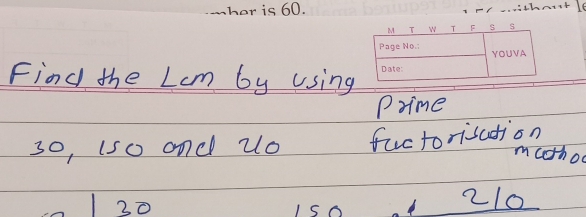 is 60.
M T W T F S S
Page No.:
YOUVA
Date:
Find the Lcm by using
Prime
30, 150 and 210
factorisation
method
30 150 210